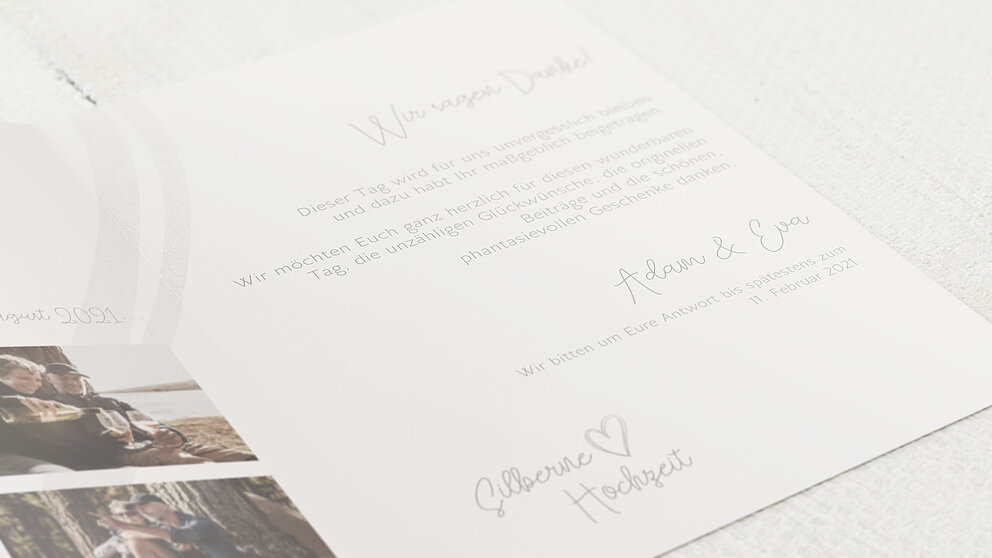 Wir sagen Danke!
Dieser Tag wird für uns unvergesslich bleiben
und dazu habt Ihr maßgeblich beigetragen
Wir möchten Euch ganz herzlich für diesen wunderbaren
Tag, die unzähligen Glückwünsche, die originellen
Beiträge und die schönen,
phantasievollen Geschenke danken.
Adam & Eva
Wir bitten um Eure Antwort bis spätestens zum
11. Februar 2021.
Silberne
Hochzeit
2021...